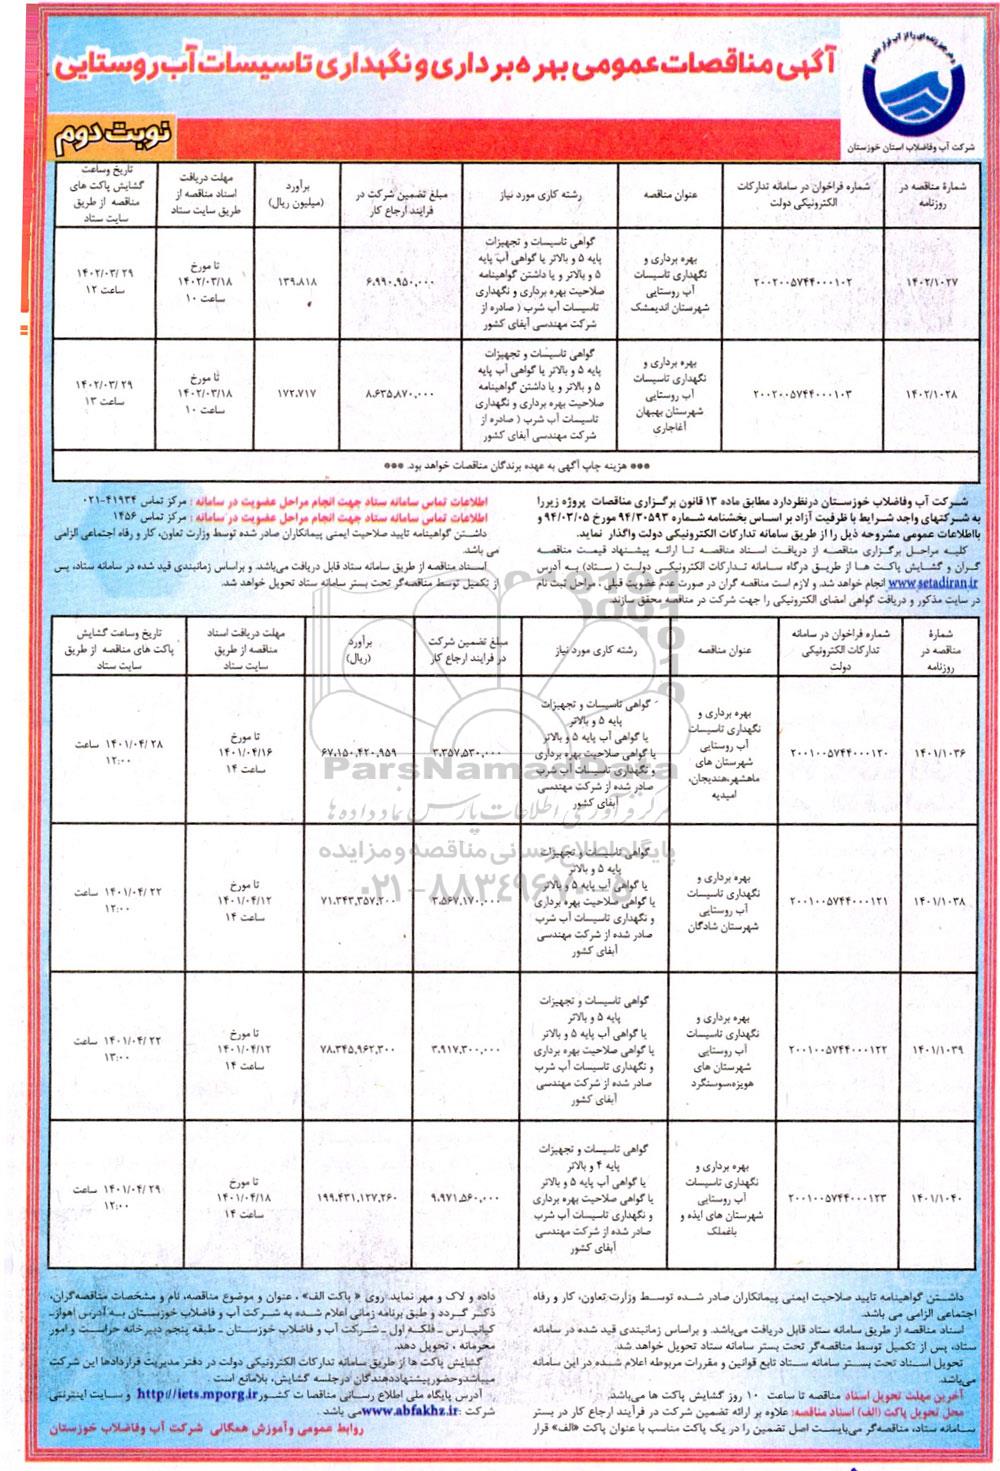 آگهی مناقصات عمومی بهره برداری و نگهداری تاسیسات آب روستایی
شرکت آب وفاضلاب استان خوزستان
نوبت دوم
شمارهٔ مناقصه در روزنامه
شماره فراخوان در سامانه تدارکات الکترونیکی دولت
عنوان مناقصه
رشته کاری مورد نیاز
مبلغ تضمین شرکت در فرایند ارجاع کار
برآورد (میلیون ریال)
مهلت دریافت اسناد مناقصه از طریق سایت ستاد
تاریخ وساعت گشایش پاکت های مناقصه از طریق سایت ستاد
۱۴۰۲/۱۰۲۷
۲۰۰۲۰۰۵۷۴۴۰۰۰۱۰۲
بهره برداری و نگهداری تاسیسات آب روستایی شهرستان اندیمشک
گواهی تاسیسات و تجهیزات پایه ۵ و بالاتر یا گواهی آب پایه ۵ و بالاتر و یا داشتن گواهینامه صلاحیت بهره برداری و نگهداری تاسیسات آب شرب ( صادره از شرکت مهندسی آبفای کشور
۶.۹۹۰.۹۵۰.۰۰۰
۱۳۹.۸۱۸
تا مورخ ۱۴۰۲/۰۳/۱۸ ساعت ۱۰
۱۴۰۲/۰۳/۲۹ ساعت ۱۲
۱۴۰۲/۱۰۲۸
۲۰۰۲۰۰۵۷۴۴۰۰۰۱۰۳
بهره برداری و نگهداری تاسیسات آب روستایی شهرستان بهبهان آغاجاری
گواهی تاسیسات و تجهیزات پایه ۵ و بالاتر یا گواهی آب پایه ۵ و بالاتر و یا داشتن گواهینامه صلاحیت بهره برداری و نگهداری تاسیسات آب شرب ( صادره از شرکت مهندسی آبفای کشور
۸.۶۳۵.۸۷۰.۰۰۰
۱۷۲.۷۱۷
تا مورخ ۱۴۰۲/۰۳/۱۸ ساعت ۱۰
۱۴۰۲/۰۳/۲۹ ساعت ۱۳
*** هزینه چاپ آگهی به عهده برندگان مناقصات خواهد بود. ***
شرکت آب وفاضلاب خوزستان درنظردارد مطابق ماده ۱۳ قانون برگزاری مناقصات پروژه زیررا
به شرکتهای واجد شرایط با ظرفیت آزاد بر اساس بخشنامه شماره ۹۴/۳۰۵۹۳ مورخ ۹۴/۰۳/۰۵ و
بااطلاعات عمومی مشروحه ذیل را از طریق سامانه تدارکات الکترونیکی دولت واگذار نماید.
کلیه مراحل برگزاری مناقصه از دریافت اسناد مناقصه تا ارائه پیشنهاد قیمت مناقصه
گران و گشایش پاکت ها از طریق درگاه سامانه تدارکات الکترونیکی دولت ( ستاد) به آدرس
www.setadiran.ir انجام خواهد شد. و لازم است مناقصه گران در صورت عدم عضویت قبلی ، مراحل ثبت نام
در سایت مذکور و دریافت گواهی امضای الکترونیکی را جهت شرکت در مناقصه محقق سازند.
اطلاعات تماس سامانه ستاد جهت انجام مراحل عضویت در سامانه : مرکز تماس ۴۱۹۳۴-۰۲۱
اطلاعات تماس سامانه ستاد جهت انجام مراحل عضویت در سامانه : مرکز تماس ۱۴۵۶
داشتن گواهینامه تایید صلاحیت ایمنی پیمانکاران صادر شده توسط وزارت تعاون، کار و رفاه اجتماعی الزامی
می باشد.
اسناد مناقصه از طریق سامانه ستاد قابل دریافت می‌باشد. و براساس زمانبندی قید شده در سامانه ستاد، پس
از تکمیل توسط مناقصه‌گر تحت بستر سامانه ستاد تحویل خواهد شد.
شمارهٔ مناقصه در روزنامه
شماره فراخوان در سامانه تدارکات الکترونیکی دولت
عنوان مناقصه
رشته کاری مورد نیاز
مبلغ تضمین شرکت در فرایند ارجاع کار
برآورد (ریال)
مهلت دریافت اسناد مناقصه از طریق سایت ستاد
تاریخ وساعت گشایش پاکت های مناقصه از طریق سایت ستاد
۱۴۰۱/۱۰۳۶
۲۰۰۱۰۰۵۷۴۴۰۰۰۱۲۰
بهره برداری و نگهداری تاسیسات آب روستایی شهرستان های ماهشهر،هندیجان، امیدیه
گواهی تاسیسات و تجهیزات پایه ۵ و بالاتر یا گواهی آب پایه ۵ و بالاتر یا گواهی صلاحیت بهره برداری و نگهداری تاسیسات آب شرب صادر شده از شرکت مهندسی آبفای کشور
۳.۳۵۷.۵۳۰.۰۰۰
۶۷.۱۵۰.۴۲۰.۹۵۹
تا مورخ ۱۴۰۱/۰۴/۱۶ ساعت ۱۴
۱۴۰۱/۰۴/۲۸ ساعت ۱۲:۰۰
ParsNamadData
مرکز فرآوری اطلاعات پارس نماد داده ها
پایگاه اطلاع رسانی مناقصه و مزایده
۰۲۱-۸۸۳۴۹۶۷۰-۵
۱۴۰۱/۱۰۳۸
۲۰۰۱۰۰۵۷۴۴۰۰۰۱۲۱
بهره برداری و نگهداری تاسیسات آب روستایی شهرستان شادگان
گواهی تاسیسات و تجهیزات پایه ۵ و بالاتر یا گواهی آب پایه ۵ و بالاتر یا گواهی صلاحیت بهره برداری و نگهداری تاسیسات آب شرب صادر شده از شرکت مهندسی آبفای کشور
۳.۵۶۷.۱۷۰.۰۰۰
۷۱.۳۴۳.۳۵۷.۲۰۰
تا مورخ ۱۴۰۱/۰۴/۱۲ ساعت ۱۴
۱۴۰۱/۰۴/۲۲ ساعت ۱۲:۰۰
۱۴۰۱/۱۰۳۹
۲۰۰۱۰۰۵۷۴۴۰۰۰۱۲۲
بهره برداری و نگهداری تاسیسات آب روستایی شهرستان های هویزه،سوسنگرد
گواهی تاسیسات و تجهیزات پایه ۵ و بالاتر یا گواهی آب پایه ۵ و بالاتر یا گواهی صلاحیت بهره برداری و نگهداری تاسیسات آب شرب صادر شده از شرکت مهندسی آبفای کشور
۳.۹۱۷.۳۰۰.۰۰۰
۷۸.۳۴۵.۹۶۲.۳۰۰
تا مورخ ۱۴۰۱/۰۴/۱۲ ساعت ۱۴
۱۴۰۱/۰۴/۲۲ ساعت ۱۳:۰۰
۱۴۰۱/۱۰۴۰
۲۰۰۱۰۰۵۷۴۴۰۰۰۱۲۳
بهره برداری و نگهداری تاسیسات آب روستایی شهرستان های ایذه و باغملک
گواهی تاسیسات و تجهیزات پایه ۴ و بالاتر یا گواهی آب پایه ۵ و بالاتر یا گواهی صلاحیت بهره برداری و نگهداری تاسیسات آب شرب صادر شده از شرکت مهندسی آبفای کشور
۹.۹۷۱.۵۶۰.۰۰۰
۱۹۹.۴۳۱.۱۲۷.۲۶۰
تا مورخ ۱۴۰۱/۰۴/۱۸ ساعت ۱۴
۱۴۰۱/۰۴/۲۹ ساعت ۱۲:۰۰
داشتن گواهینامه تایید صلاحیت ایمنی پیمانکاران صادر شده توسط وزارت تعاون، کار و رفاه
اجتماعی الزامی می باشد.
اسناد مناقصه از طریق سامانه ستاد قابل دریافت می‌باشد. و براساس زمانبندی قید شده در سامانه
ستاد، پس از تکمیل توسط مناقصه‌گر تحت بستر سامانه ستاد تحویل خواهد شد.
تحویل اسناد تحت بستر سامانه ستاد تابع قوانین و مقررات مربوطه اعلام شده در این سامانه
می‌باشد.
آخرین مهلت تحویل اسناد مناقصه تا ساعت ۱۰ روز گشایش پاکت ها می‌باشد.
محل تحویل پاکت (الف) اسناد مناقصه: علاوه بر ارائه تضمین شرکت در فرآیند ارجاع کار در بستر
سامانه ستاد، مناقصه‌گر می‌بایست اصل تضمین را در یک پاکت مناسب با عنوان پاکت «الف» قرار
داده و لاک و مهر نماید روی « پاکت الف» ، عنوان و موضوع مناقصه، نام و مشخصات مناقصه‌گران،
ذکر گردد و طبق برنامه زمانی اعلام شده به شرکت آب و فاضلاب خوزستان به آدرس اهواز-
کیانپارس ـ فلکه اول ـ شرکت آب و فاضلاب خوزستان ـ طبقه پنجم دبیرخانه حراست و امور
محرمانه ، تحویل دهد.
گشایش پاکت ها از طریق سامانه تدارکات الکترونیکی دولت در دفتر مدیریت قراردادها این شرکت
میباشد وحضور پیشنهاددهندگان درجلسه گشایش، بلامانع است .
آدرس پایگاه ملی اطلاع رسانی مناقصات کشور http://iets.mporg.ir و سایت اینترنتی
شرکت www.abfakhz.ir: می باشد .
روابط عمومی وآموزش همگانی شرکت آب وفاضلاب خوزستان